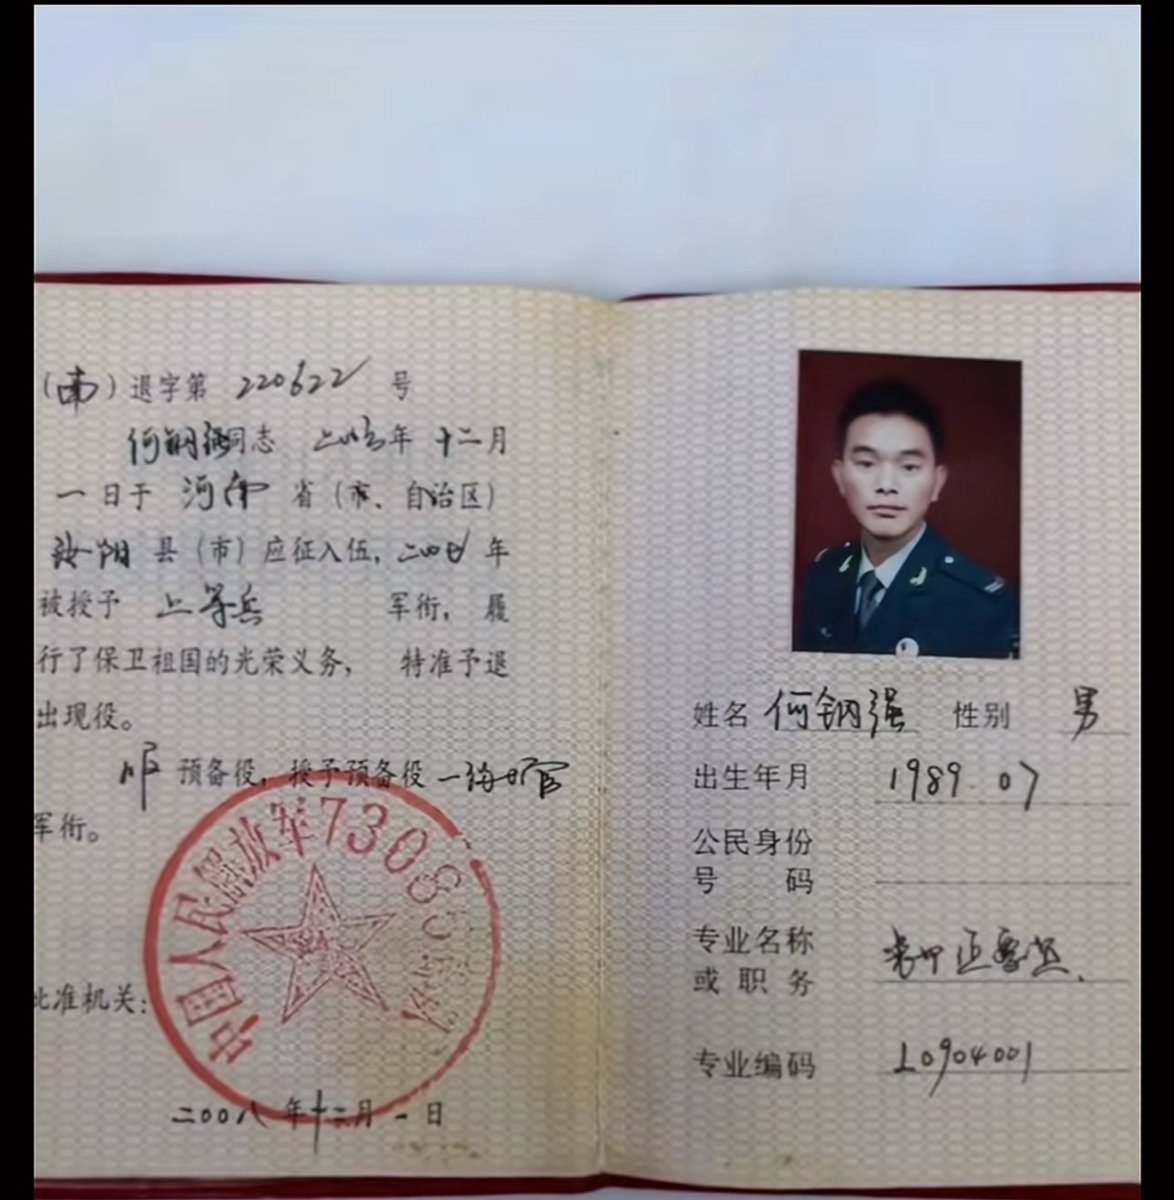 (南)退字第 220622 号
何钢强同志 年 十二月
一日于 河南 省(市、自治区)
汝阳 县(市)应征入伍, 年
被授予 上等兵 军衔, 履
行了保卫祖国的光荣义务, 特准予退
出现役。
服 预备役, 授予预备役
军衔。
中国人民解放军7308
批准机关:
二00八 年十二月一日
姓名 何钢强 性别 男
出生年月 1989.07
公民身份
号 码
专业名称
或 职 务
专业编码 L0904001